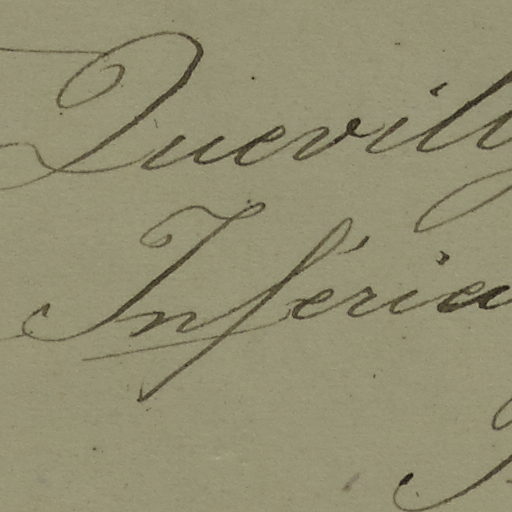 Quevilly
Inférieu